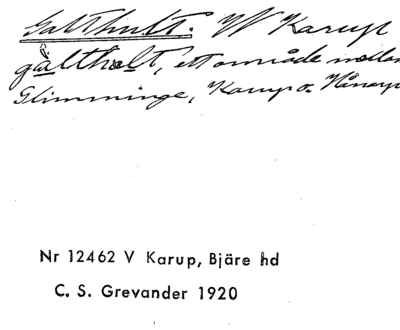 Galthult. W Karup
galtholt, ett område mellan
Glimminge, Karup o.
Nr 12462 V Karup, Bjäre hd
C. S. Grevander 1920